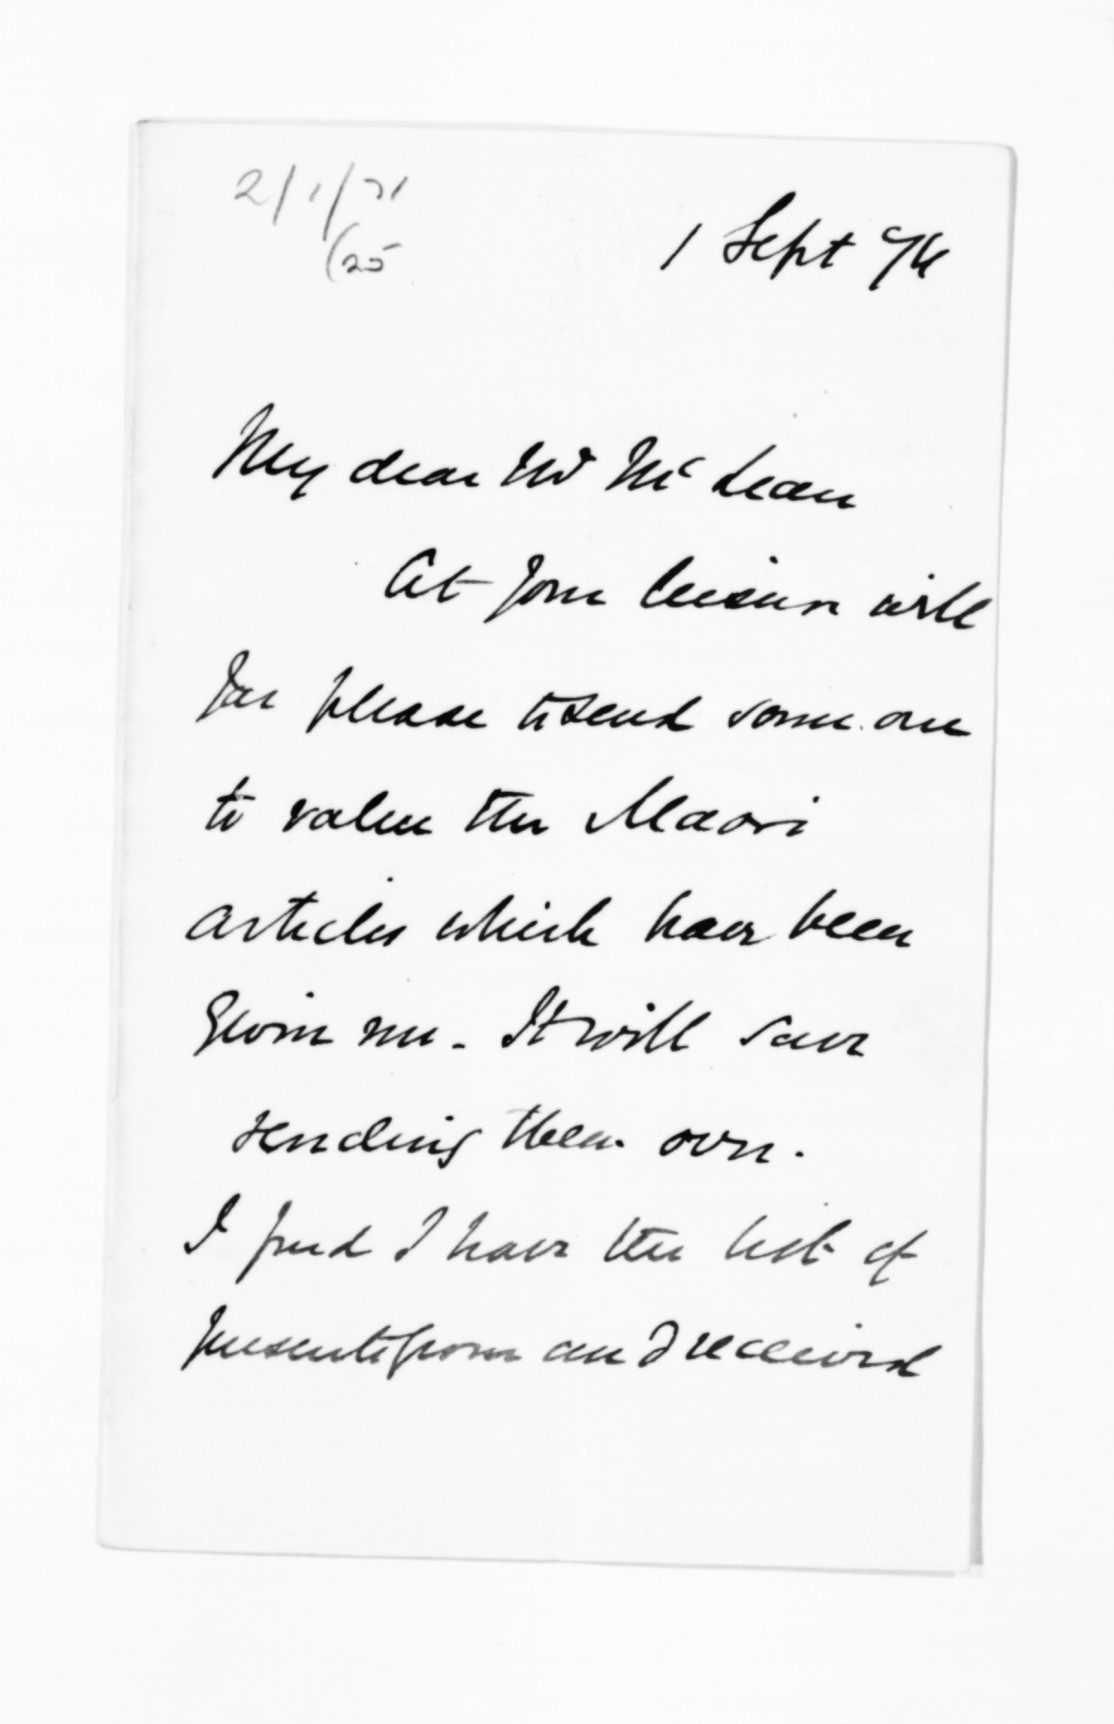 2/1/71
(25
1 Sept 74
My dear Mr McLean
At your leisure will
you please to send some one
to value the Maori
articles which have been
given me. It will save
sending them over.
I find I have the list of
presents from and I received